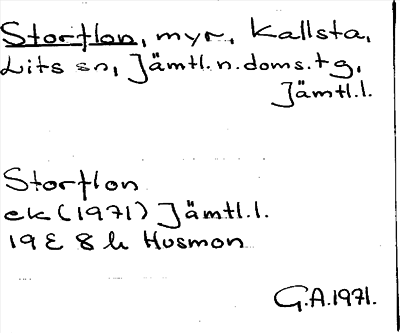 Storflon, myr, Kallsta,
Lits sn, Jämtl.n.doms.tg,
Jämtl.l.
Storflon
ek (1971) Jämtl.l.
19 E 8 h Husmon
G.A.1971.